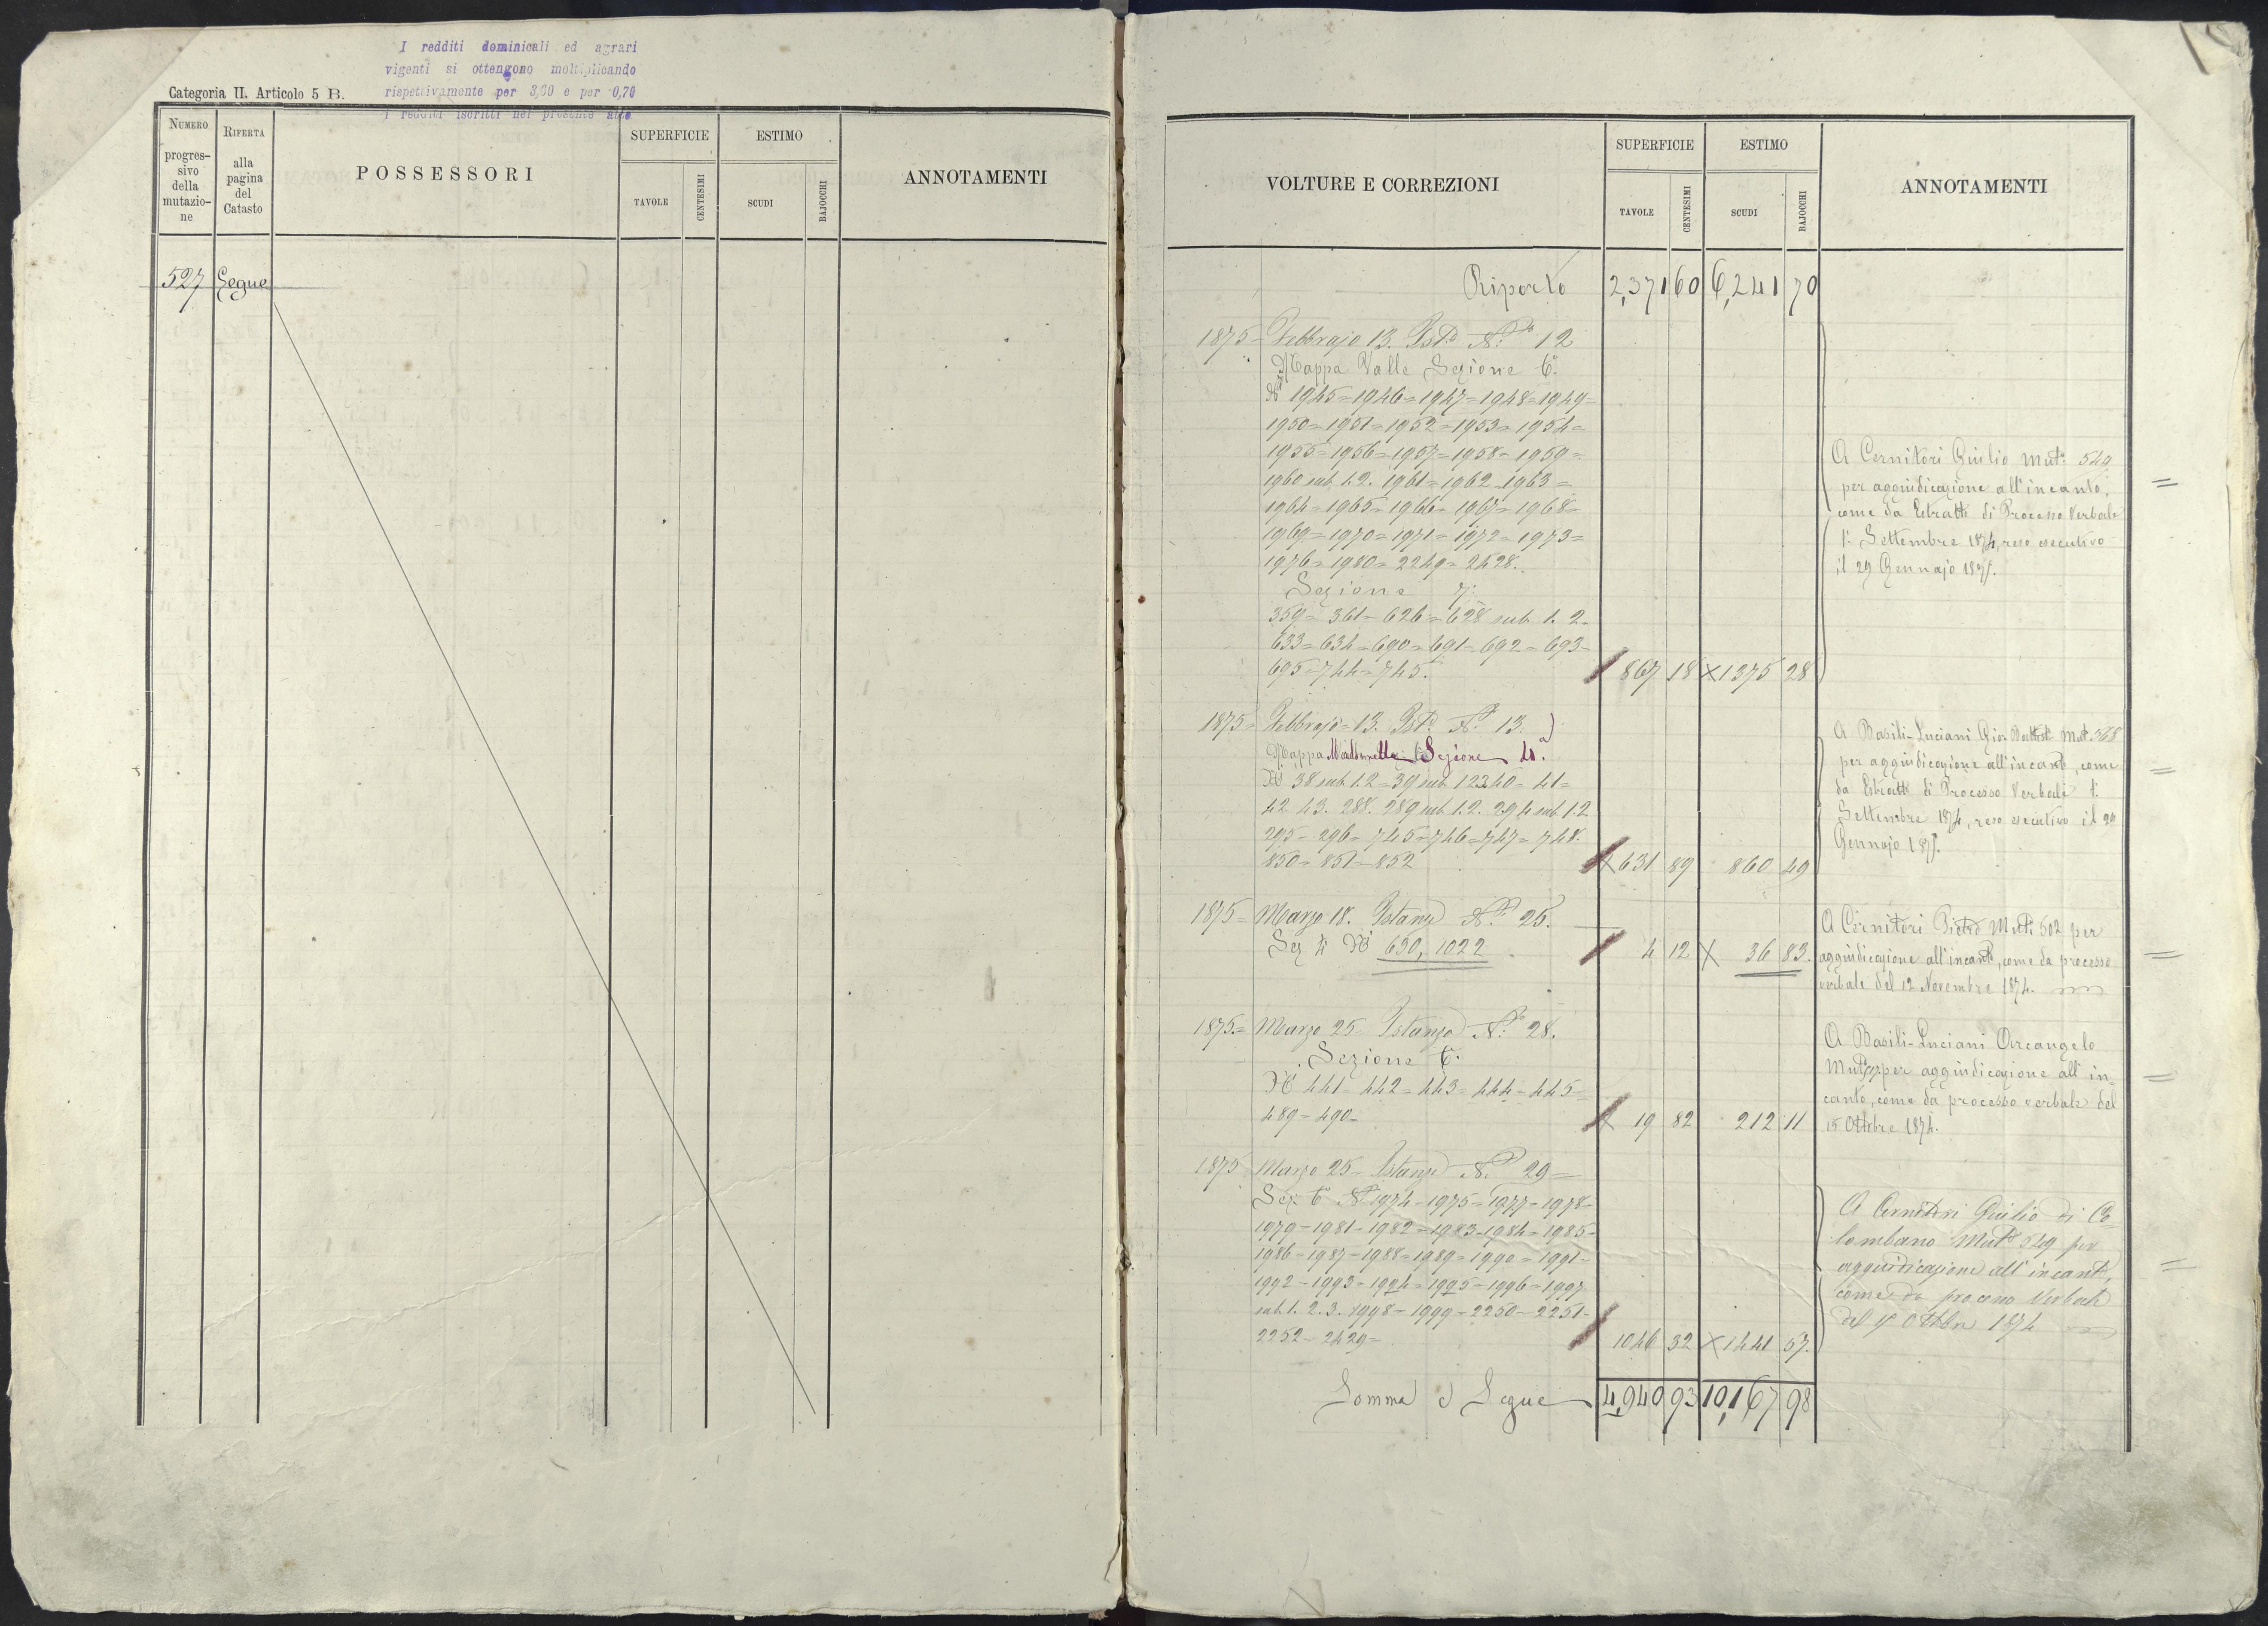 I redditi dominicali ed agrari
vigenti si ottengono moltiplicando
rispettivamente per 3,60 e per 0,70
i redditi iscritti nel presente atto
Categoria II. Articolo 5 B.
NUMERO
progres-
sivo
della
mutazio-
ne
RIFERTA
alla
pagina
del
Catasto
POSSESSORI
SUPERFICIE
TAVOLE
CENTESIMI
ESTIMO
SCUDI
BAJOCCHI
ANNOTAMENTI
527 Segue
VOLTURE E CORREZIONI
SUPERFICIE
TAVOLE
CENTESIMI
ESTIMO
SCUDI
BAJOCCHI
ANNOTAMENTI
Riporto 2,371 60 6,241 70
1875= Febbrajo 13. Ist. N.° 12
Mappa Valle Sezione 6ª
N.i 1945=1946=1947=1948=1949=
1950=1951=1952=1953=1954=
1955=1956=1957=1958=1959=
1960 sub. 1.2. 1961=1962=1963=
1964=1965=1966=1967=1968=
1969=1970=1971=1972=1973=
1976=1980=2249=2428.
Sezione 7ª
359= 361= 626=628 sub. 1. 2=
633=634=690=691=692=693=
695=744=745. 867 18 1375 28
A Cernitori Giulio Mut. 549
per aggiudicazione all'incanto,
come da Estratti di Processo Verbale
1° Settembre 1874, reso esecutivo
il 29 Gennajo 1875.
1875= Febbrajo=13. Ist. N.° 13.
Mappa Madonnella Sezione 4.a
N.i 38 sub. 1.2=39 sub. 1 2 3 40= 41=
42 43. 288. 289 sub. 1.2. 294 sub. 1.2
295= 296= 745=746=747=748.
850=851=852 631 89 860 49
A Basili-Luciani Gio. Battista Mut. 568
per aggiudicazione all'incanto, come
da Estratti di Processo Verbale 1°
Settembre 1874, reso esecutivo il 29
Gennajo 1875.
1875= Marzo 18. Istanza N.° 25.
Sez. 4ª N.i 630, 1022 4 12 36 83.
A Cernitori Pietro Mut. 502 per
aggiudicazione all'incanto, come da processo
verbale del 12 Novembre 1874.
1875= Marzo 25 Istanza N.° 28.
Sezione 6ª
N.i 441= 442=443=444=445=
489=490= 19 82 212 11
A Basili-Luciani Arcangelo
Mut. per aggiudicazione all'in-
canto, come da processo verbale del
15 Ottobre 1874.
1875 Marzo 25= Istanza N.° 29=
Sez. 6ª N.i 1974=1975=1977=1978=
1979=1981=1982=1983=1984=1985=
1986=1987=1988=1989=1990=1991=
1992=1993=1994=1995=1996=1997
sub. 1. 2. 3. 1998=1999=2250=2251=
2252=2429= 1046 32 1441 57.
A Cernitori Giulio di Co-
lombano Mut. 549 per
aggiudicazione all'incanto,
come da processo Verbale
del Ottobre 1874
Somma e Segue 4,940 93 10,167 98